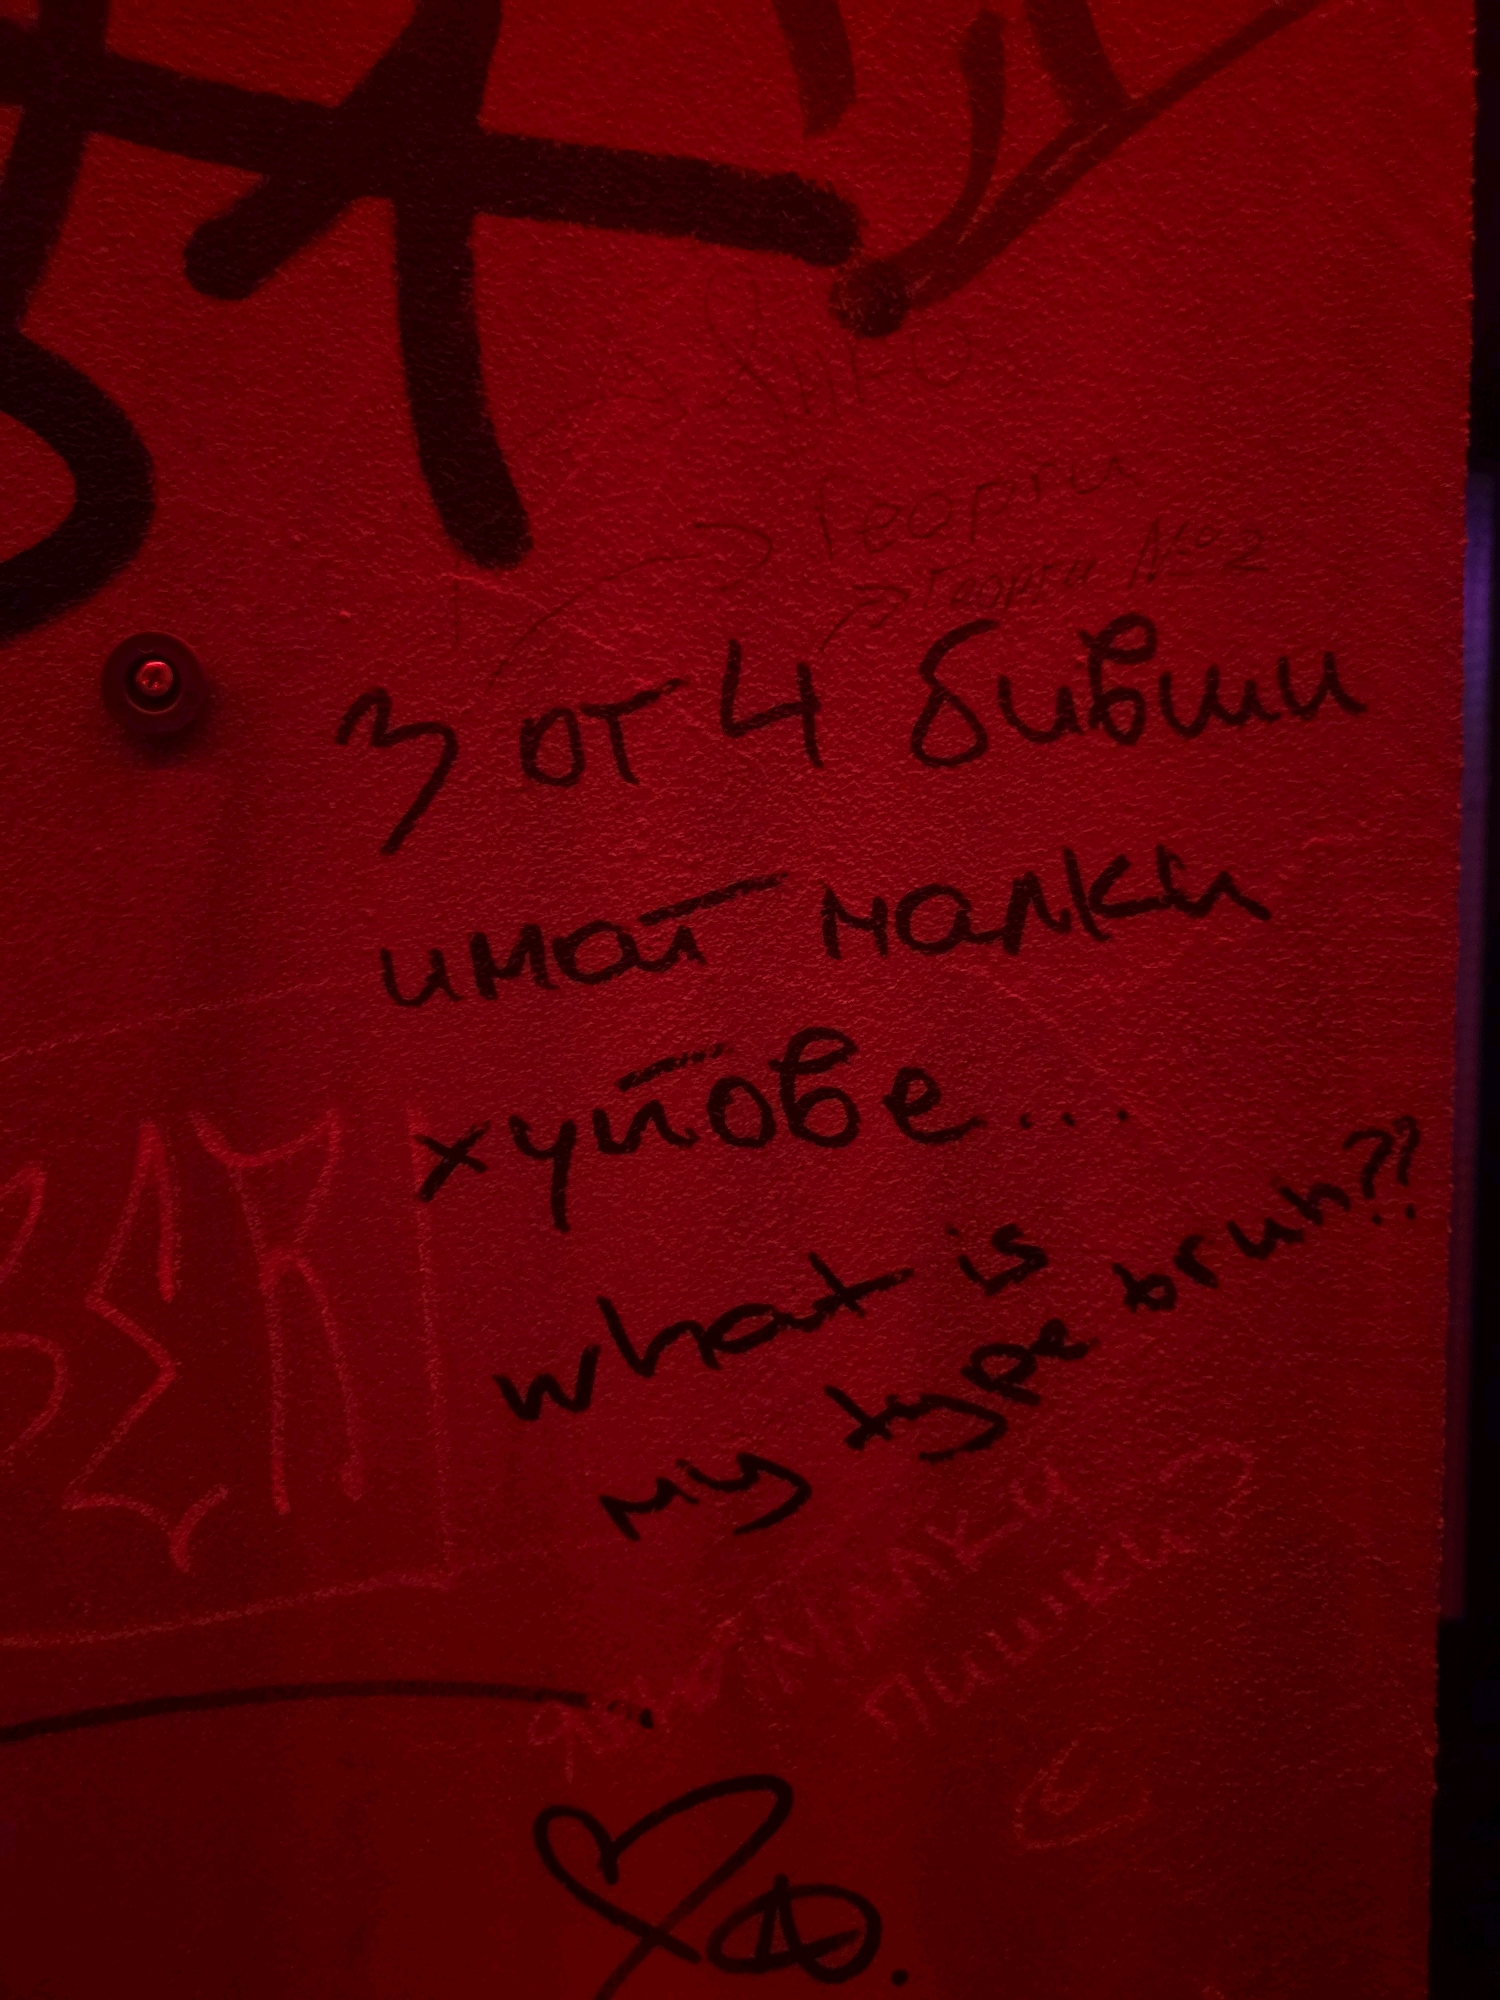 Янко
Георги
Георги №2
3 от 4 бивши
имат малки
хуйове...
what is
my type bruh??
малки
пишки?